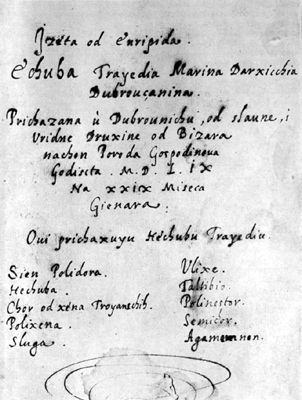 Izeta od Euripida.
Echuba Trayedia Marina Darxicchia
Dubrouçanina.
Prichazana ù Dubrounichu, od slaune, i
Vridne Druxine od Bizara
nachon Poroda Gospodinova
Godiscta. M. D. L. IX
Na XXIX Miseca
Gienara.
Oui prichaxuyu Hechubu Trayediu.
Sien Polidora.
Hechuba.
Chor od xena Troyanschih.
Polixena.
Sluga.
Ulixe.
Taltibio.
Polinestor.
Semichor.
Agamemnon.